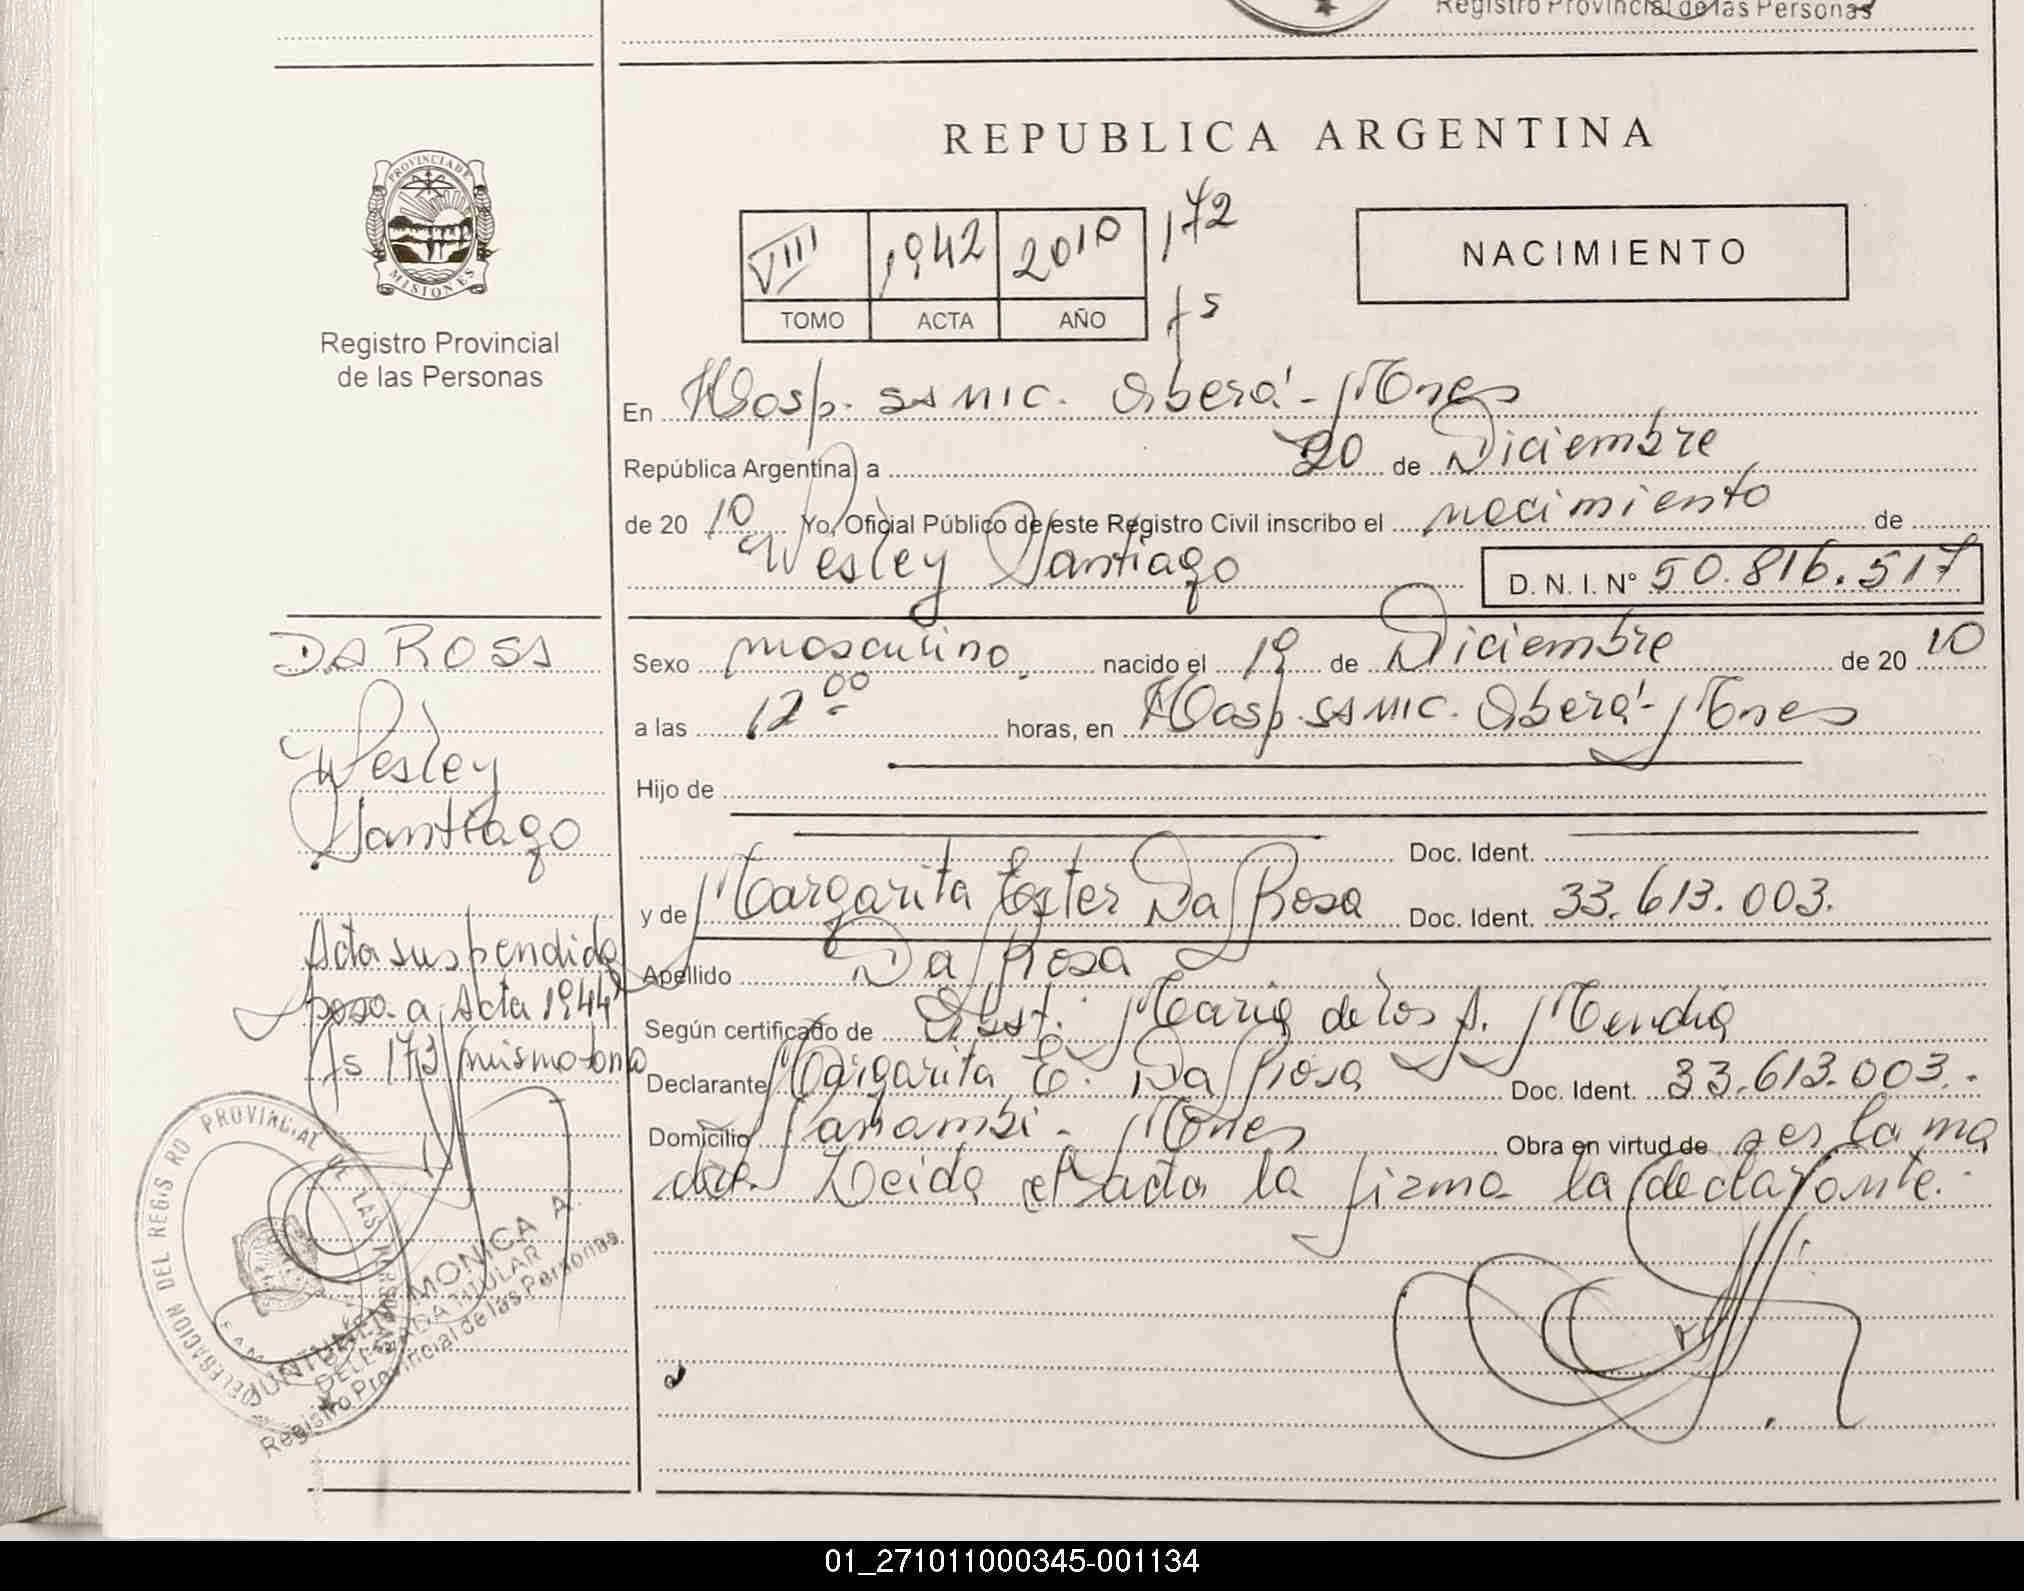 Registro Provincial de las Personas
REPUBLICA ARGENTINA
PROVINCIA DE
MISIONES
Registro Provincial
de las Personas
VIII 1942 2010 172
TOMO ACTA AÑO fs
NACIMIENTO
En Hosp. SAMIC. Oberá - Mnes
República Argentina, a 20 de Diciembre
de 20 10 Yo, Oficial Público de este Registro Civil inscribo el nacimiento de
Wesley Santiago D. N. I. N° 50.816.517
DA ROSA
Wesley
Santiago
Sexo masculino nacido el 19 de Diciembre de 20 10
a las 12 00 horas, en Hosp. SAMIC. Oberá - Mnes
Hijo de
Doc. Ident.
y de Margarita Ester Da Rosa Doc. Ident. 33.613.003.
Apellido Da Rosa
Según certificado de Obst. María de los A. Mendia
Declarante Margarita E. Da Rosa Doc. Ident. 33.613.003.
Domicilio Panambi - Mnes Obra en virtud de ser la ma
dre. Leida el acta la firma la declarante.
Acta suspendida
pasa a Acta 1944
fs 173 mismo tomo
DELEGACION DEL REGISTRO PROVINCIAL DE LAS PERSONAS
MONICA A.
DELEGADA TITULAR
Registro Provincial de las Personas
01_271011000345-001134